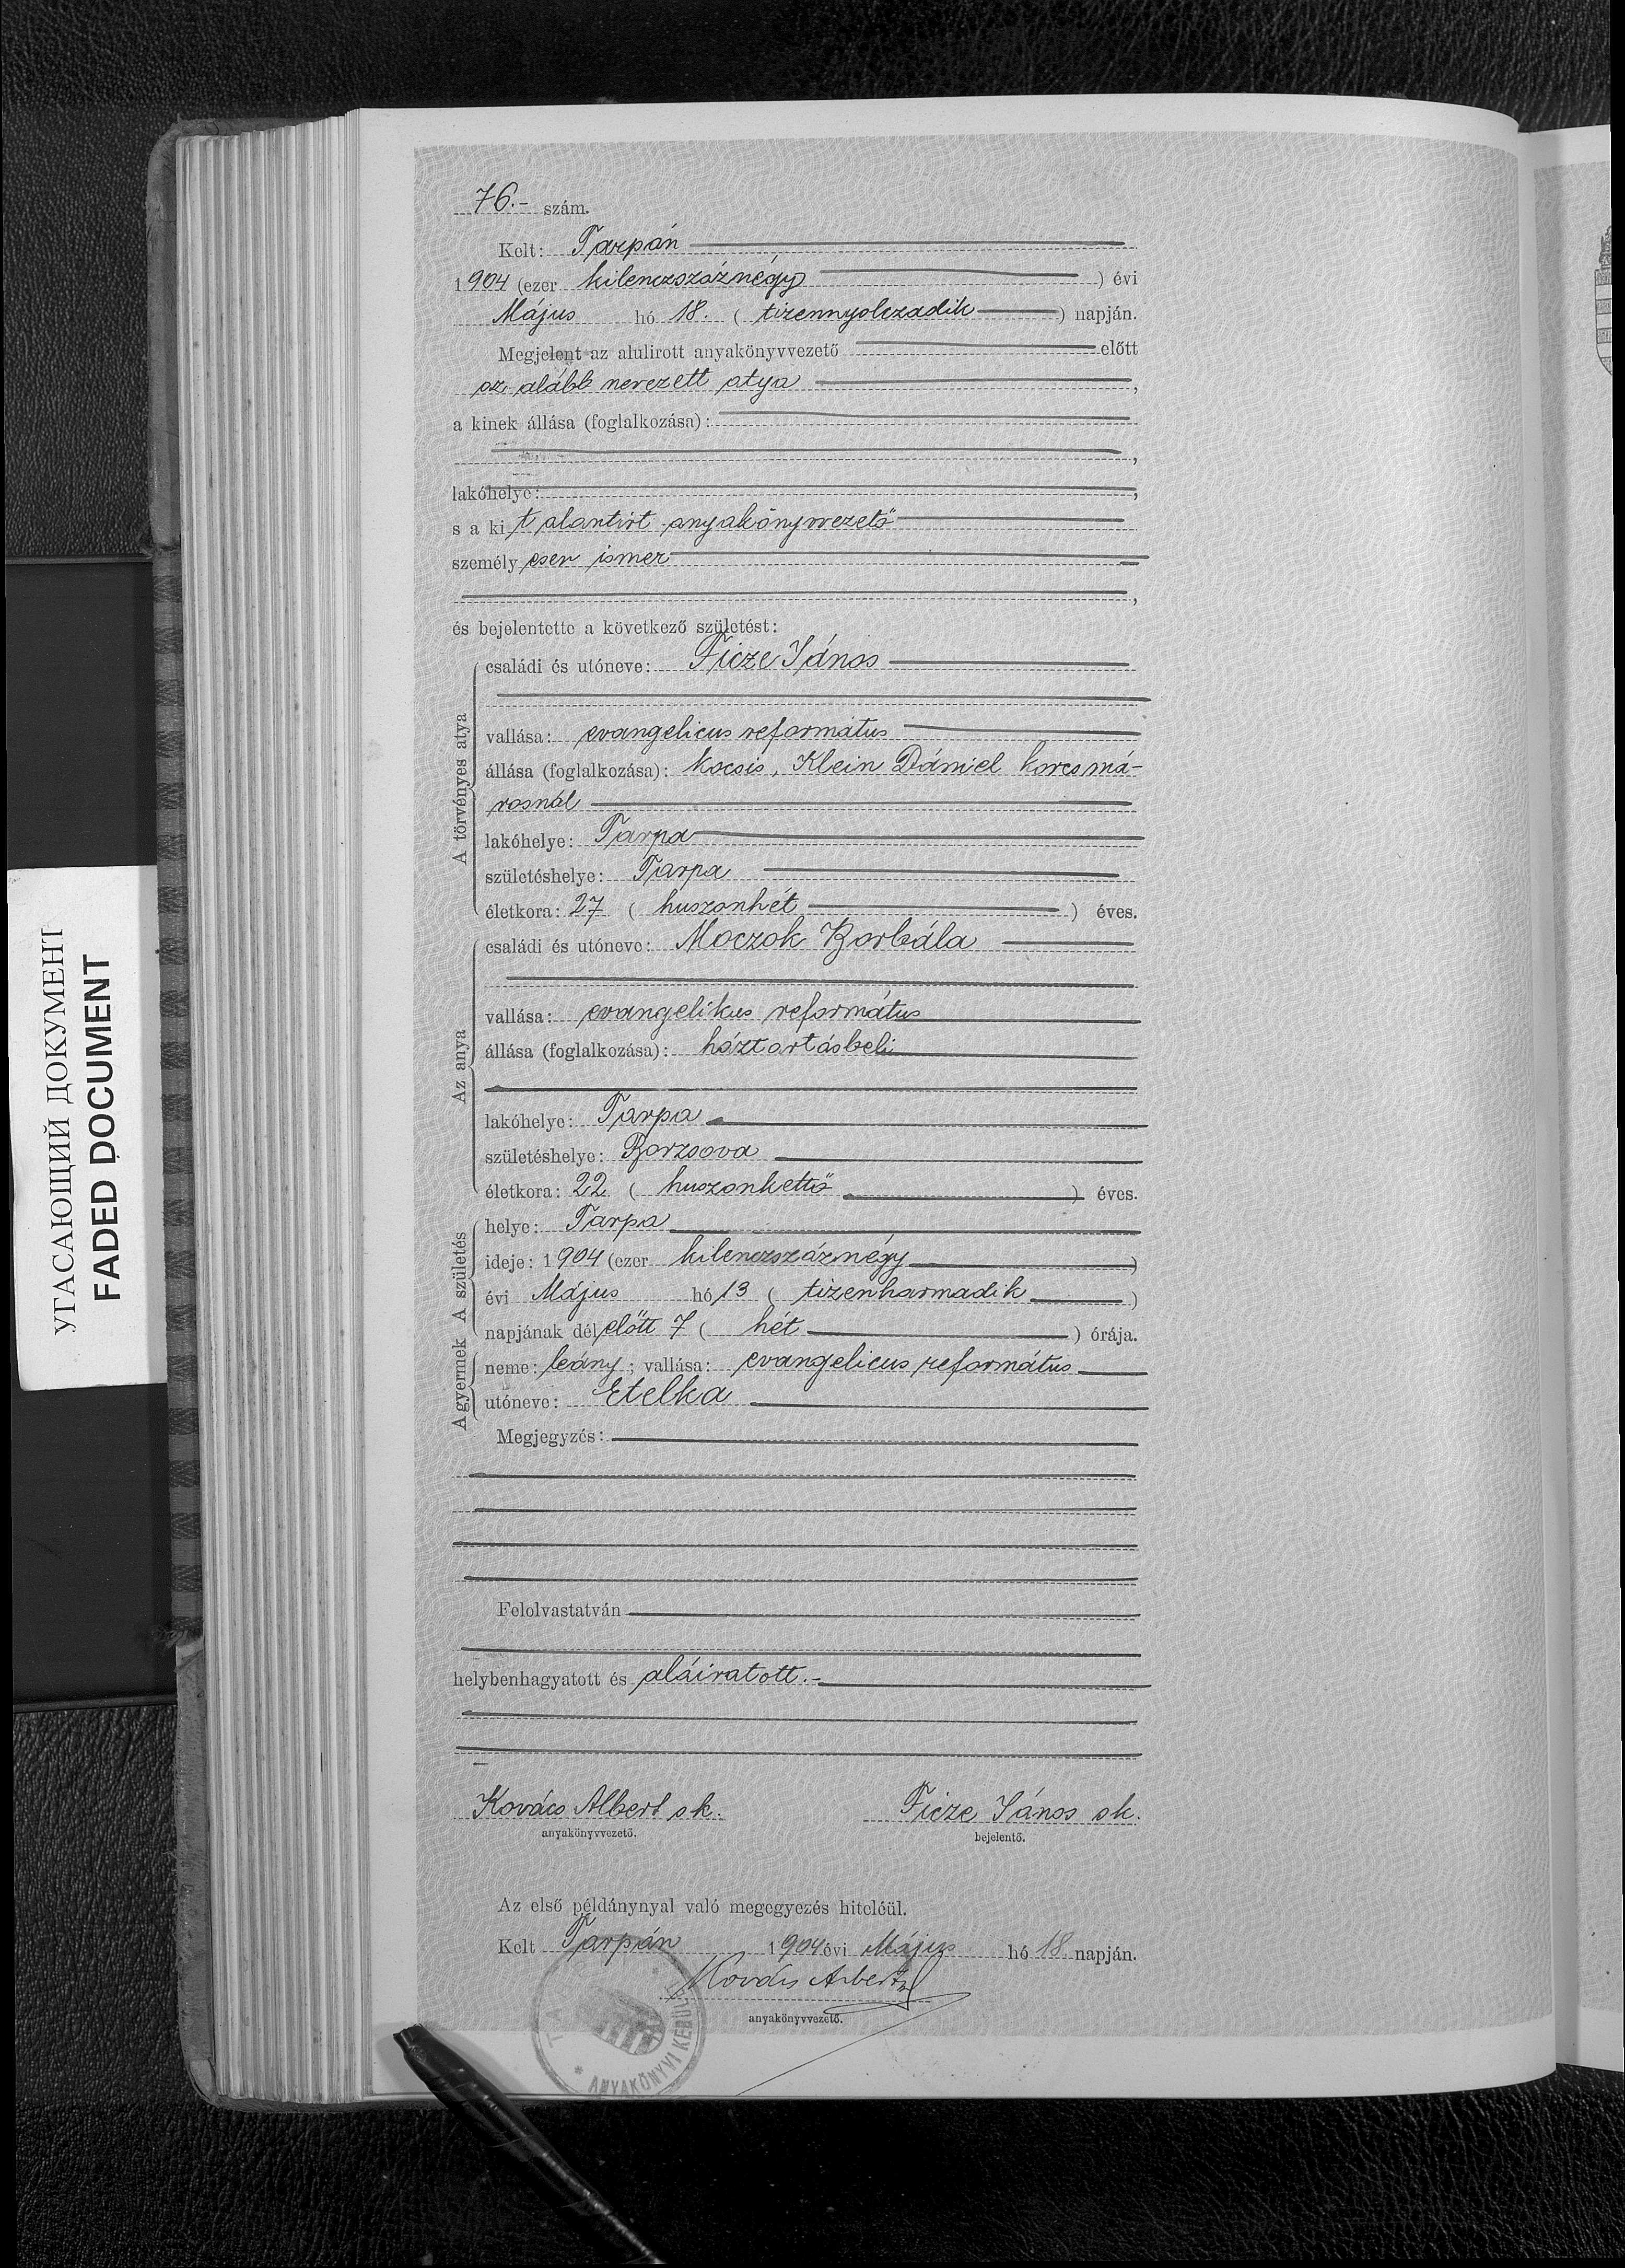 76.- szám.
Kelt: Tarpán
1904 (ezer kilenczszáznégy) évi
Május hó 18. (tizennyolczadik) napján.
Megjelent az alulirott anyakönyvvezető előtt
az alább nevezett atya,
a kinek állása (foglalkozása):
,
lakóhelye: ,
s a kit alantirt anyakönyvvezető
személyesen ismer
,
és bejelentette a következő születést:
A törvényes atya
családi és utóneve: Ficze János
vallása: evangelicus református
állása (foglalkozása): kocsis, Klein Dániel korcsmá-
rosnál
lakóhelye: Tarpa
születéshelye: Tarpa
életkora: 27 (huszonhét) éves.
Az anya
családi és utóneve: Moczok Borbála
vallása: evangelikus református
állása (foglalkozása): háztartásbeli
lakóhelye: Tarpa
születéshelye: Borzsova
életkora: 22 (huszonkettő) éves.
A születés
helye: Tarpa
ideje: 1904 (ezer kilenczszáznégy)
évi Május hó 13 (tizenharmadik)
napjának délelőtt 7 (hét) órája.
A gyermek
neme: leány; vallása: evangelicus református
utóneve: Etelka
Megjegyzés:
Felolvastatván
helybenhagyatott és aláiratott.-
Kovács Albert sk. Ficze János sk.
anyakönyvvezető. bejelentő.
Az első példánynyal való megegyezés hiteléül.
Kelt Tarpán 1904 évi Május hó 18. napján.
Kovács Albert
anyakönyvvezető.
ANYAKÖNYVI KERÜL
УГАСАЮЩИЙ ДОКУМЕНТ
FADED DOCUMENT